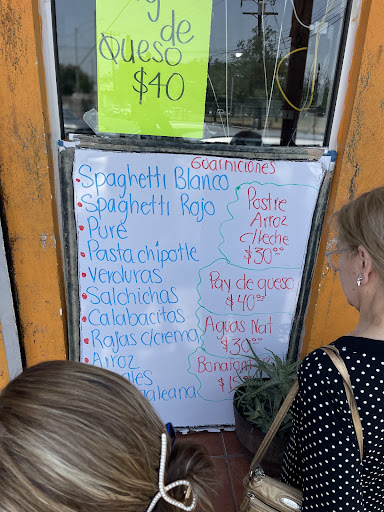 de
Queso
$40
Guarniciones
Spaghetti Blanco
Spaghetti Rojo
Puré
Pasta chipotle
verduras
Salchichas
Calabacitas
Rajas c/crema
Arroz
Postre
Arroz
c/leche
$30.00
Pay de queso
$40.00
Aguas Nat
$30.00